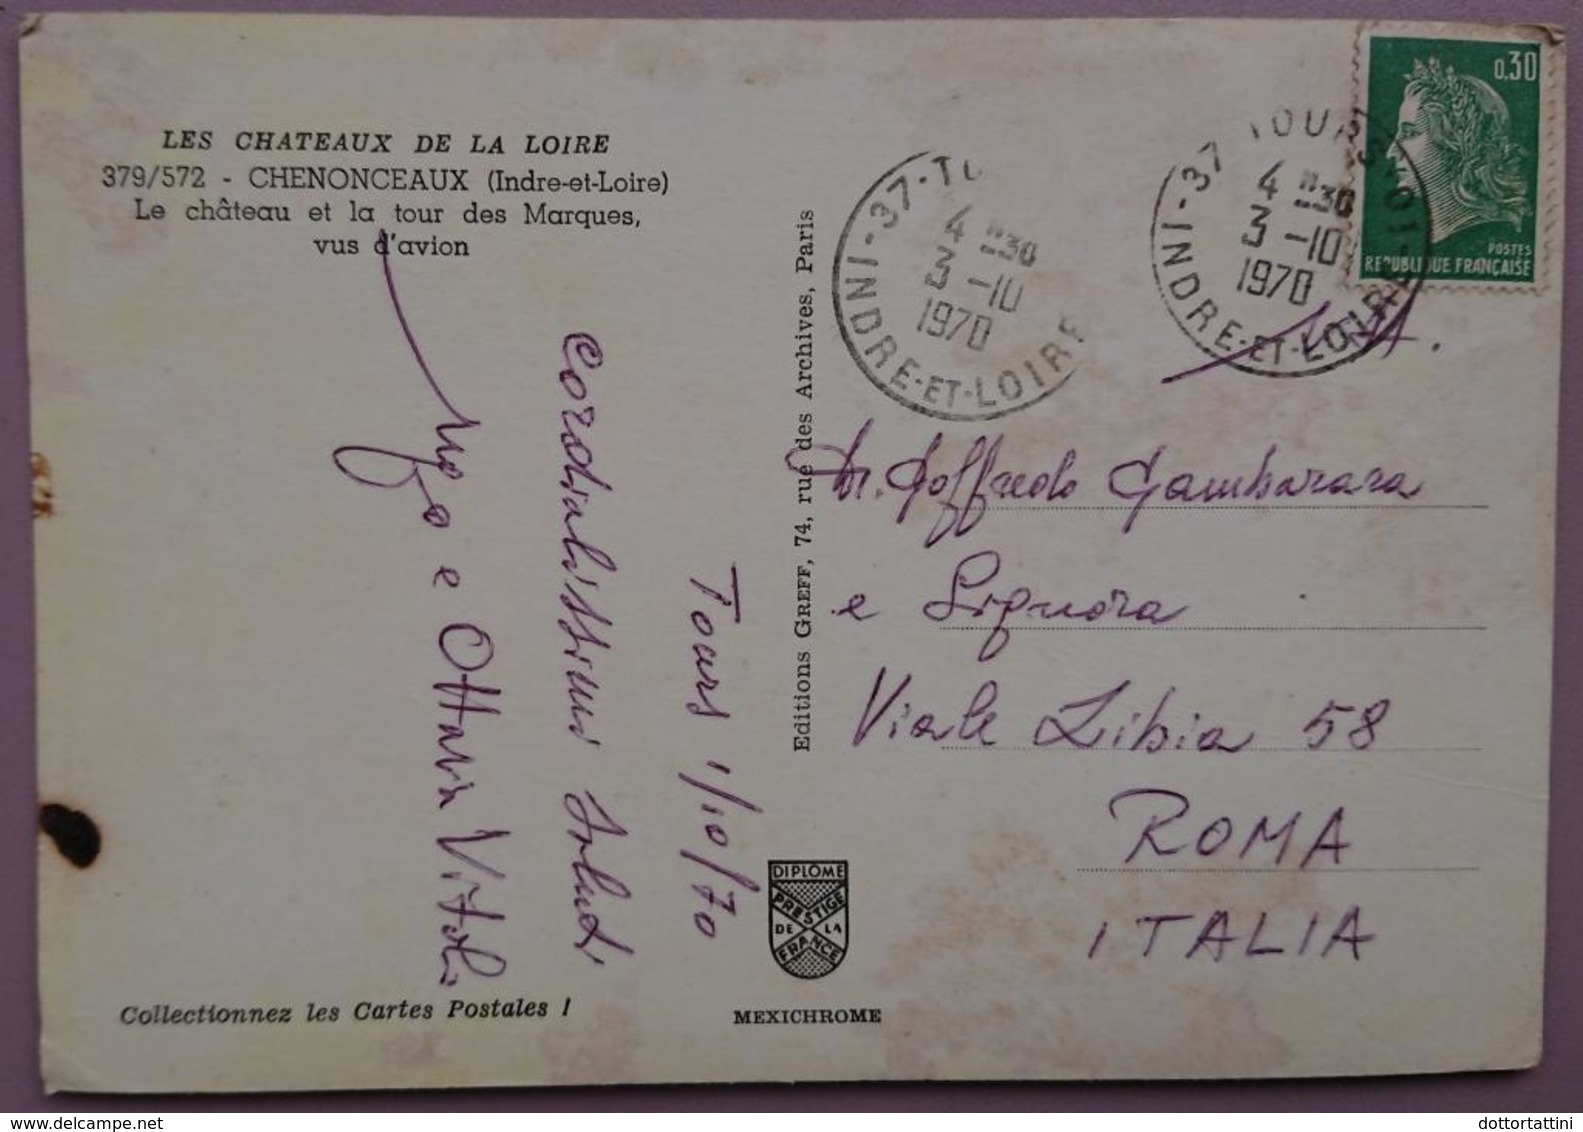 LES CHATEAUX DE LA LOIRE
379/572 - CHENONCEAUX (Indre-et-Loire)
Le château et la tour des Marques,
vus d'avion
Tours 1/10/70
Cordialissimi saluti
e Ottavia Vitoli
Collectionnez les Cartes Postales !
Editions GREFF, 74, rue des Archives, Paris
DIPLOME
PRESTIGE
DE LA
FRANCE
MEXICHROME
37-T
4 H30
3-10
1970
INDRE-ET-LOIRE
37 TOURS
4 H30
3-10
1970
INDRE-ET-LOIRE
0,30
POSTES
REPUBLIQUE FRANÇAISE
Dr. Goffredo Gambarara
e Signora
Viale Libia 58
ROMA
ITALIA
dottortattini